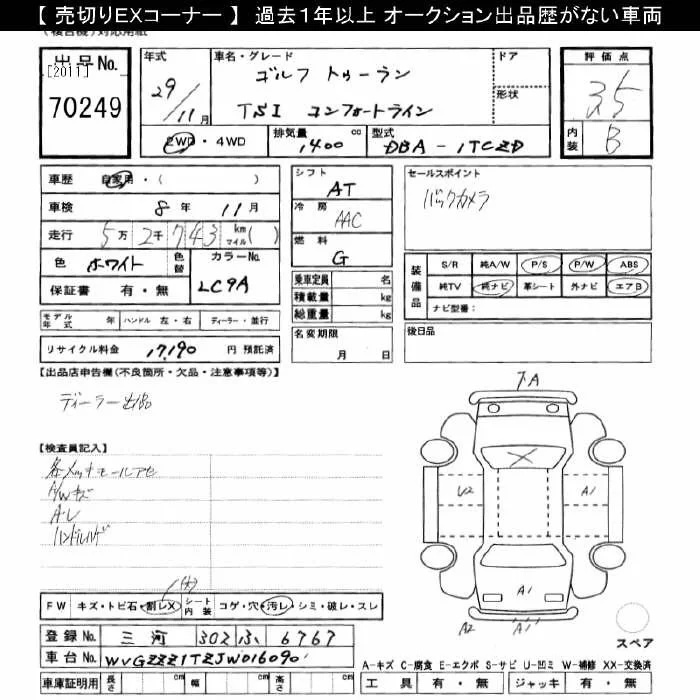 【 売切りEXコーナー 】 過去１年以上 オークション出品歴がない車両
出品No.
[2011]
70249
年式
29/11月
車名・グレード
ゴルフ トゥーラン
TSI コンフォートライン
ドア
形状
評価点
3.5
内装
B
2WD・4WD
排気量
1,400 cc
型式
DBA-1TCZD
車歴 自家用・( )
車検 8年 11月
走行 5万 2千 743 km マイル( )
色 ホワイト 色替
カラーNo.
LC9A
保証書 有・無
シフト
AT
冷房
AAC
燃料
G
乗車定員 名
積載量 kg
総重量 kg
セールスポイント
バックカメラ
装備品
S/R 純A/W P/S P/W ABS
純TV 純ナビ 革シート 外ナビ エアB
ナビ型番：
モデル年式 年 ハンドル 左・右 ディーラー・並行
リサイクル料金 17,190 円 預託済
名変期限
月 日
後日品
【出品店申告欄(不良箇所・欠品・注意事項等)】
ディーラー出品
【検査員記入】
各メッキモールアセ
A/Wキズ
A・レ
ハンドルハゲ
(大)
FW キズ・トビ石・割レX シート内装 コゲ・穴・汚レ・シミ・破レ・スレ
登録No. 三河 302 ふ 6767
車台No. WVGZZZ1TZJW016090
車庫証明用 長さ cm 幅 cm 高さ cm
A
X
U2
A1
A1
A2
A1
スペア
A-キズ C-腐食 E-エクボ S-サビ U-凹ミ W-補修 XX-交換済
工具 有・無 ジャッキ 有・無